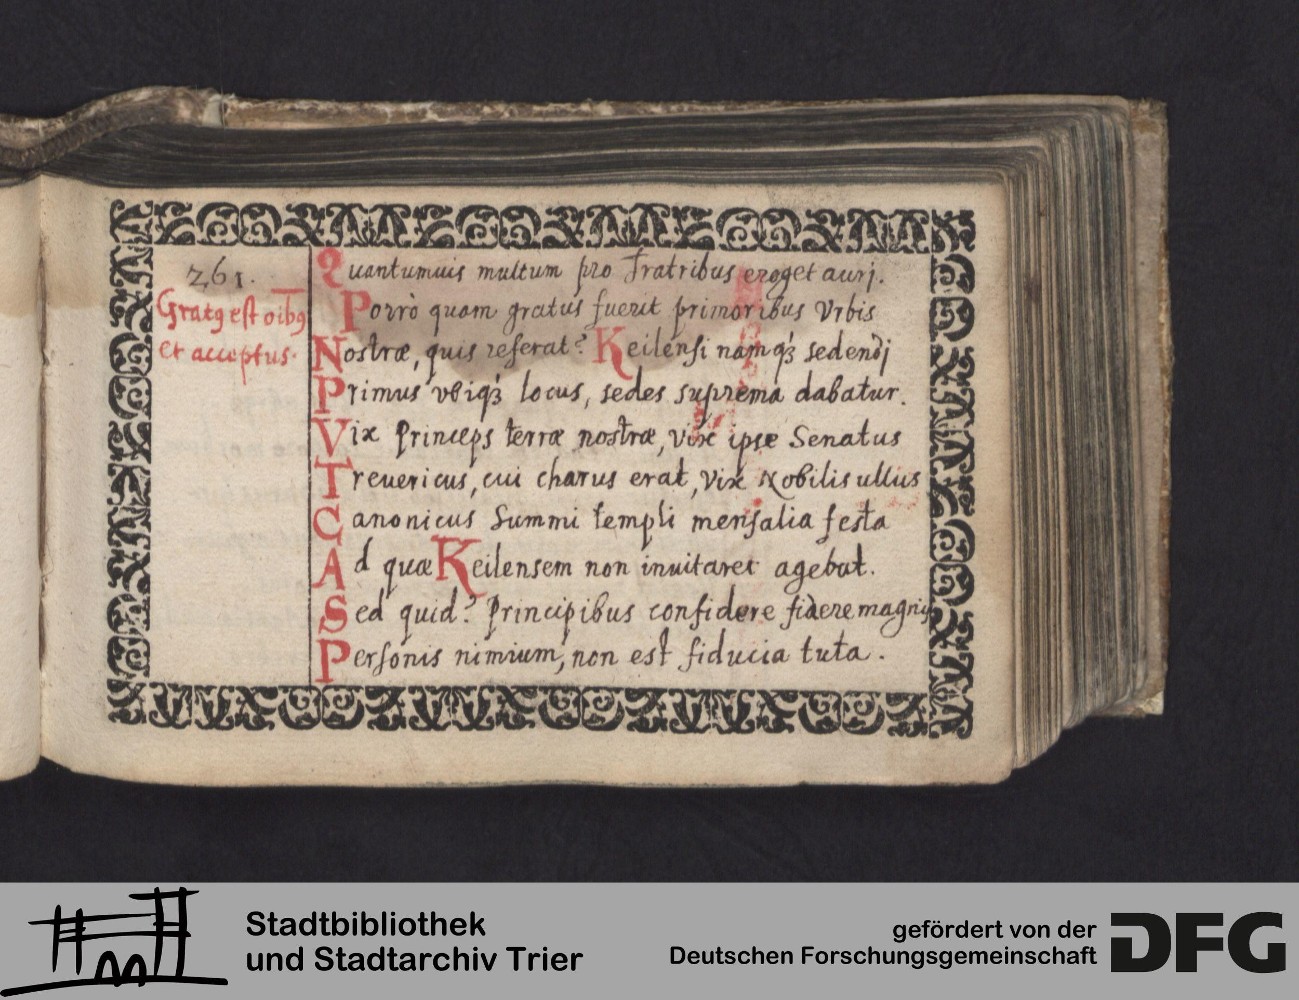 261.
Gratꝯ est oībꝯ
et acceptus.
Quantumuis multum pro Fratribus eroget aurj.
Porrò quam gratus fuerit primoribus Vrbis
Nostræ, quis referat? Keilensi namqꝫ sedendj
Primus vbiqꝫ locus, sedes suprema dabatur.
Vix Princeps terræ nostræ, vix ipse Senatus
Treuericus, cui charus erat, vix Nobilis ullus
Canonicus Summi templi mensalia festa
Ad quæ Keilensem non inuitaret agebat.
Sed quid? Principibus confidere fidere magnis
Personis nimium, non est fiducia tuta.
Stadtbibliothek
und Stadtarchiv Trier
gefördert von der
Deutschen Forschungsgemeinschaft
DFG